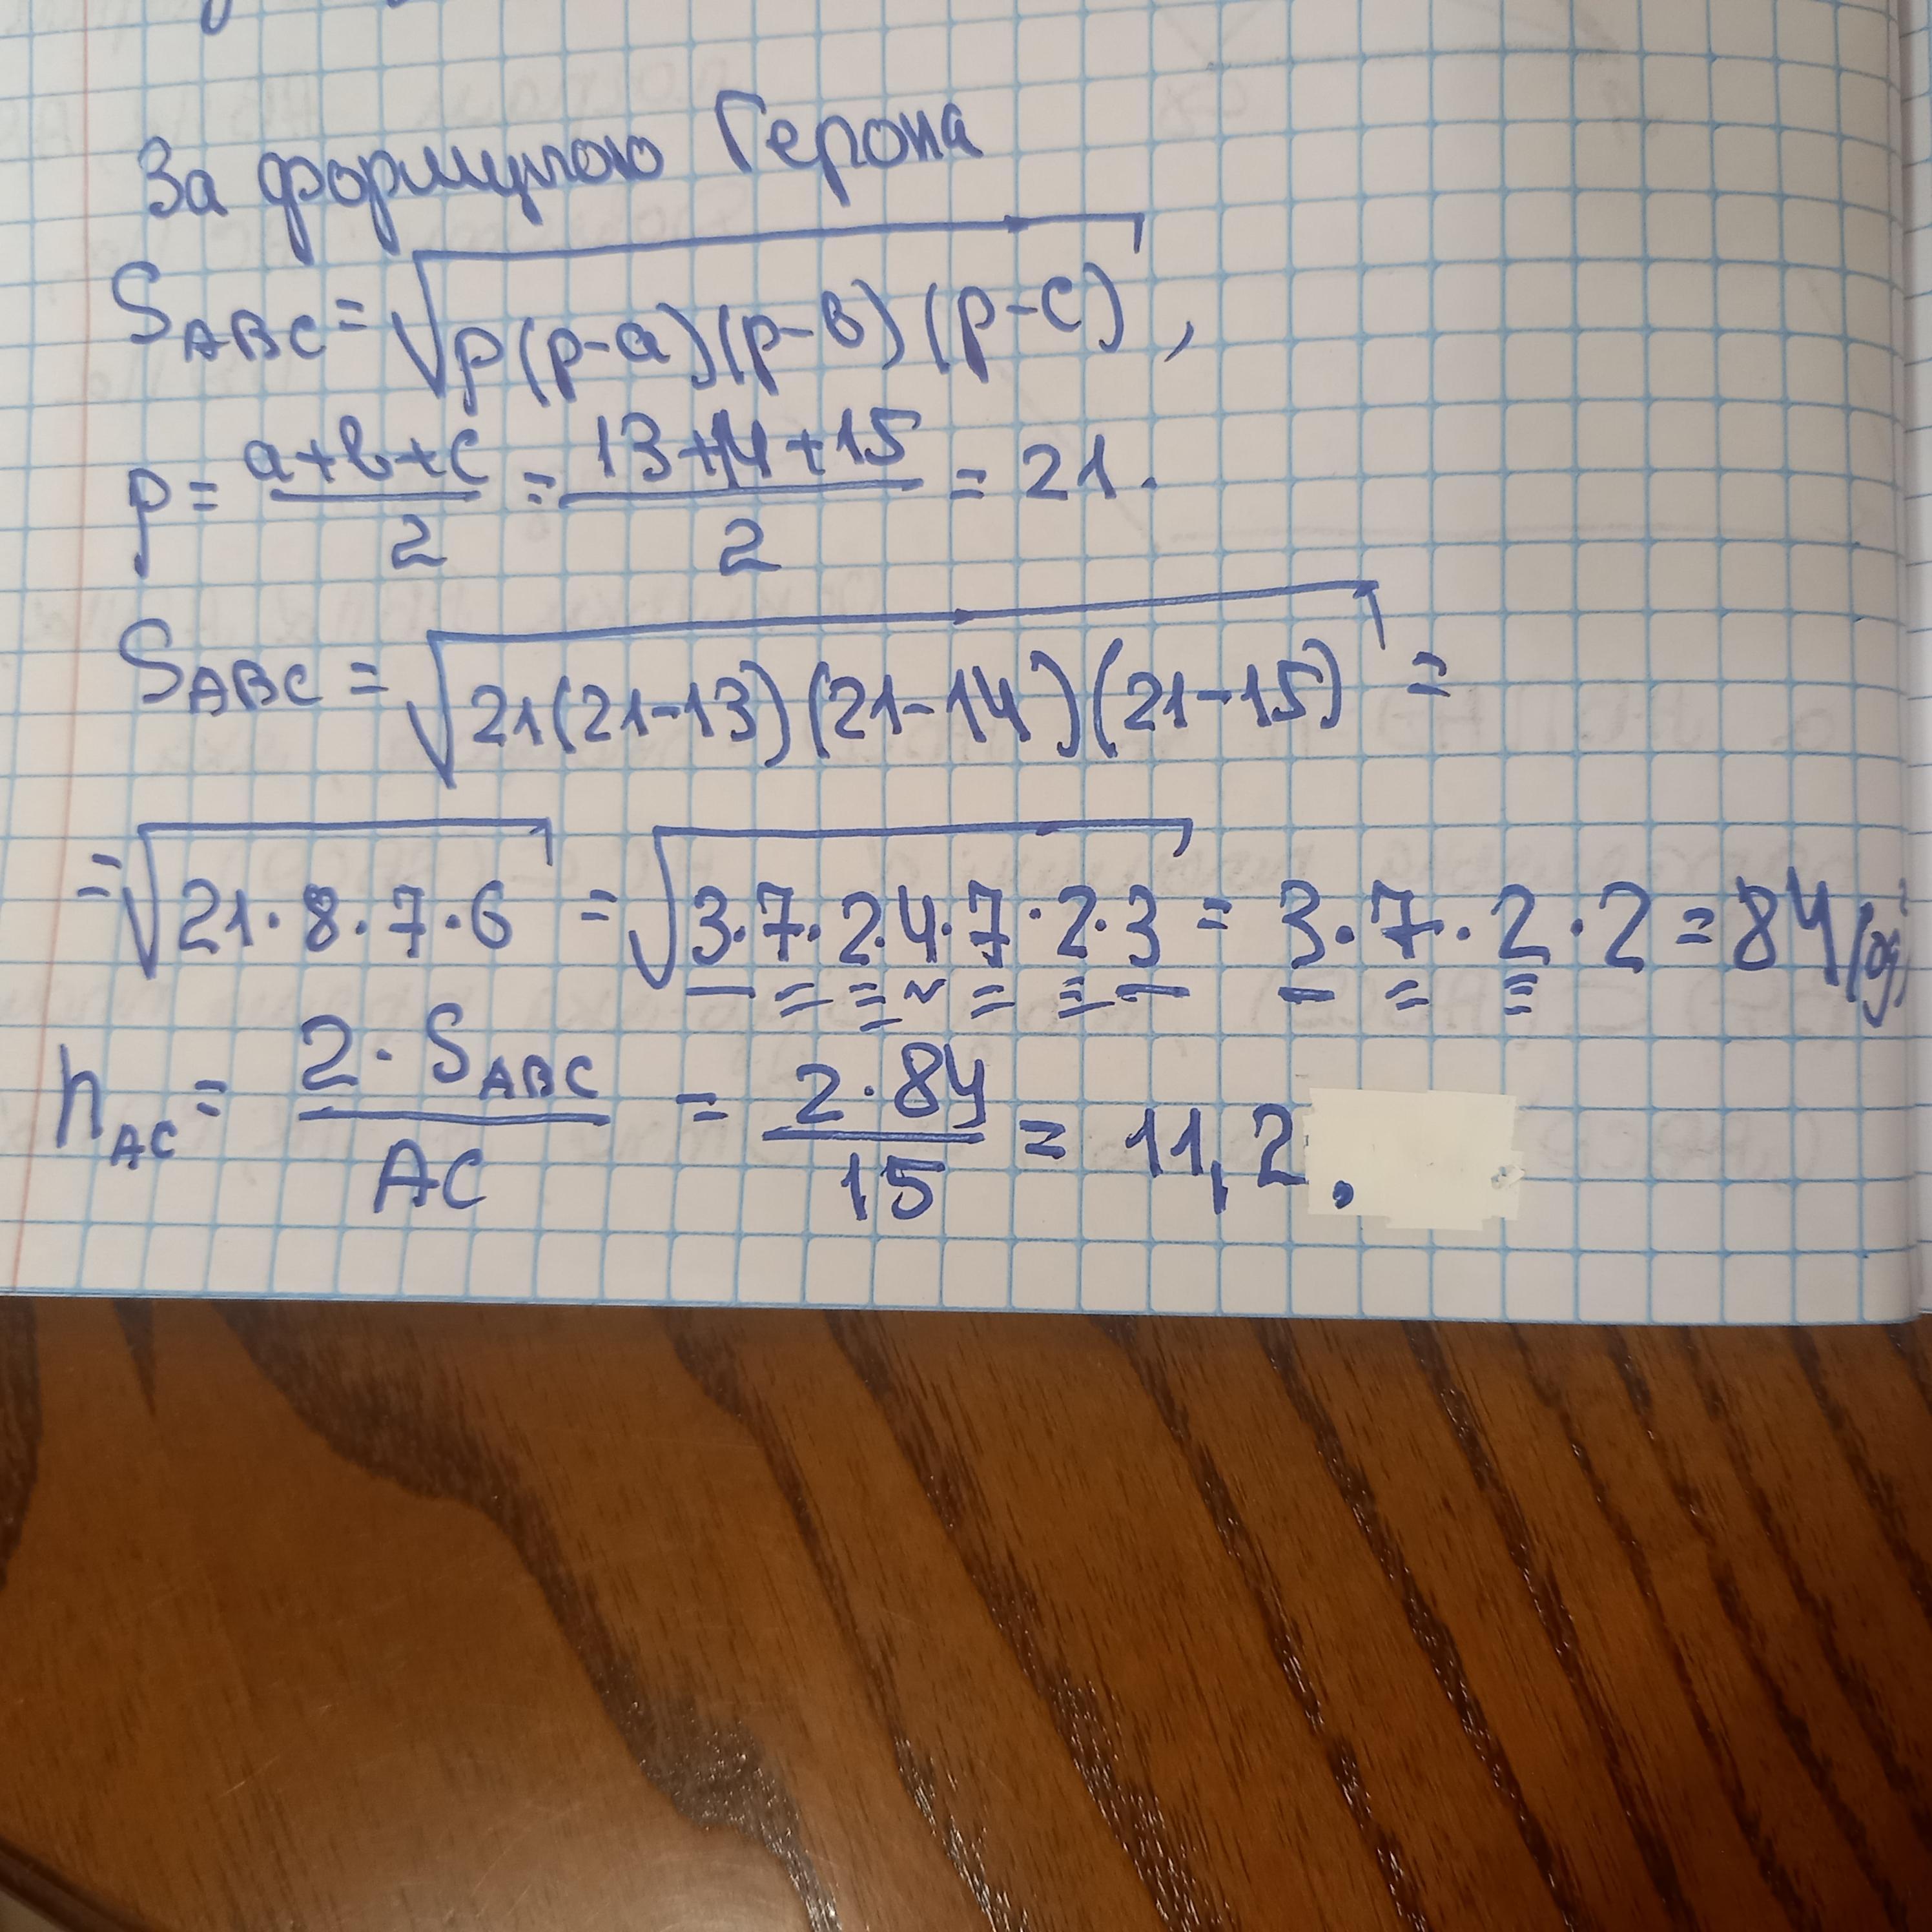 За формулою Герона
S_ABC = √p(p-a)(p-в)(p-c),
p = (a+в+c)/2 = (13+14+15)/2 = 21.
S_ABC = √21(21-13)(21-14)(21-15) =
= √21·8·7·6 = √3·7·2·4·7·2·3 = 3·7·2·2 = 84
h_AC = (2·S_ABC)/AC = (2·84)/15 = 11,2.